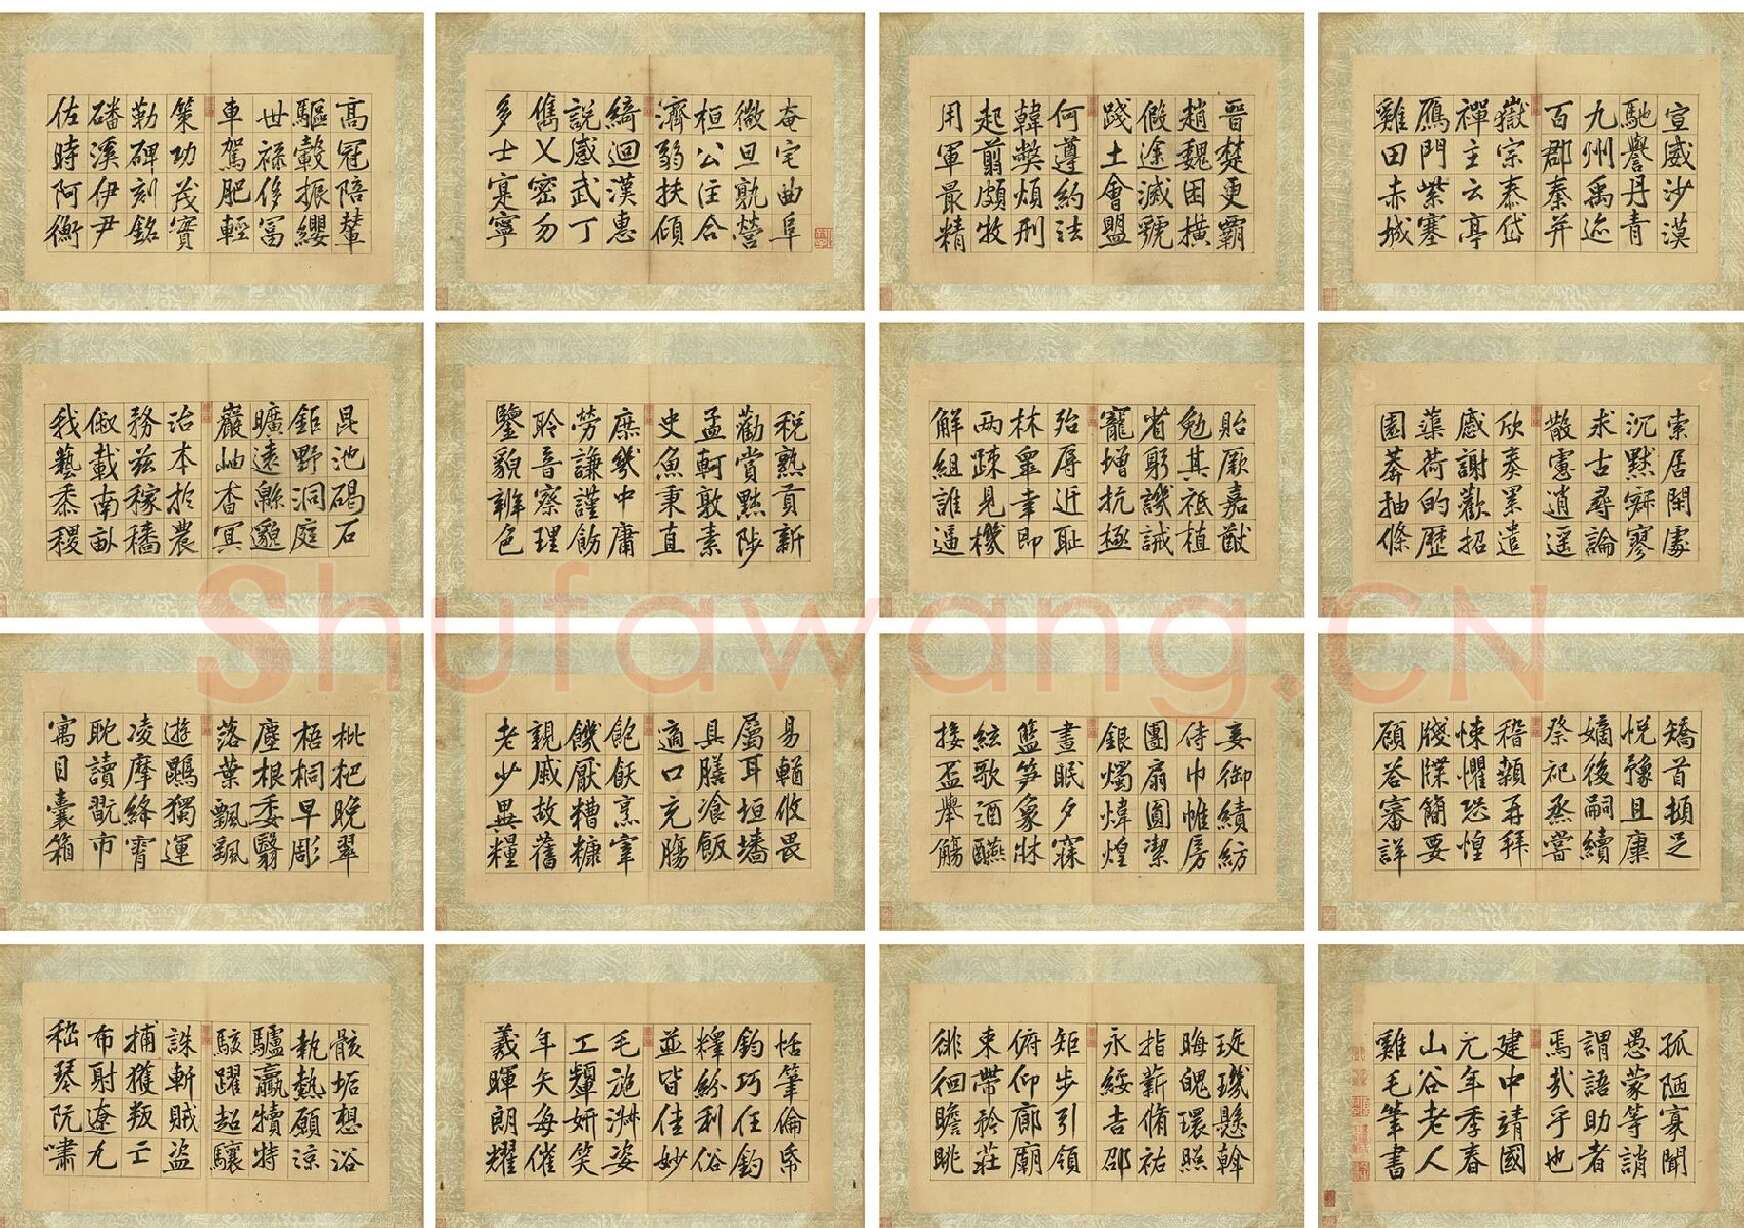 高冠陪輦
驅轂振纓
世祿侈冨
車駕肥輕
策功茂實
勒碑刻銘
磻溪伊尹
佐時阿衡
奄宅曲阜
微旦孰營
桓公注合
濟弱扶傾
綺迴漢惠
說感武丁
儁乂密勿
多士寔寧
晉楚更霸
趙魏困橫
假途滅虢
踐土會盟
何遵約法
韓獘煩刑
起翦頗牧
用軍最精
宣威沙漠
馳譽丹青
九州禹迹
百郡秦并
嶽宗泰岱
禪主云亭
鴈門紫塞
雞田赤城
昆池碣石
鉅野洞庭
曠遠緜邈
巖岫杳冥
治本於農
務茲稼穡
俶載南畝
我藝黍稷
稅熟貢新
勸賞黜陟
孟軻敦素
史魚秉直
庶幾中庸
勞謙謹飭
聆音察理
鑒貌辨色
貽厥嘉猷
勉其祗植
省躬譏誡
寵增抗極
殆辱近恥
林睪幸即
两疎見機
解組誰逼
索居閑處
沉默寂寥
求古尋論
散慮逍遥
欣奏累遣
慼謝歡招
蕖荷的歷
園莽抽條
枇杷晚翠
梧桐早彫
塵根委翳
落葉飄颻
遊鵾獨運
凌摩絳霄
耽讀翫市
寓目囊箱
易輶攸畏
屬耳垣墻
具膳飡飯
適口充腸
飽飫烹宰
饑厭糟糠
親戚故舊
老少異糧
妾御績紡
侍巾帷房
團扇圓潔
銀燭煒煌
晝眠夕寐
籃笋象牀
絃歌酒讌
接盃舉觴
矯首頓足
悅豫且康
嫡後嗣續
祭祀烝嘗
稽顙再拜
悚懼恐惶
牋牒簡要
顧荅審詳
骸垢想浴
執熱願涼
驢驘犢特
駭躍超驤
誅斬賊盜
捕獲叛亡
布射遼丸
嵇琴阮嘯
恬筆倫帋
鈞巧任釣
釋紛利俗
並皆佳妙
毛施淑姿
工顰妍笑
年矢每催
羲暉朗耀
琁璣懸斡
晦魄環照
指薪脩祜
永綏吉邵
矩步引領
俯仰廊廟
束帶矜莊
徘徊瞻眺
孤陋寡聞
愚蒙等誚
謂語助者
焉哉乎也
建中靖國
元年季春
山谷老人
雞毛筆書
Shufawang.CN